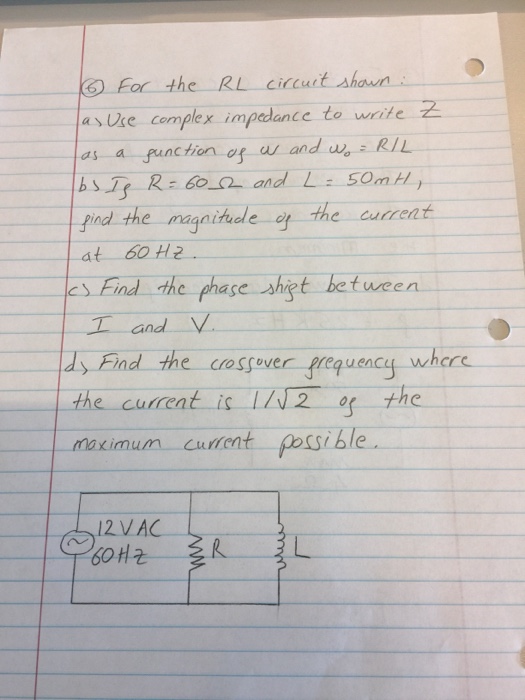 ⑥ For the RL circuit shown :
a) Use complex impedance to write Z
as a function of ω and ω₀ = R/L
b) If R = 60 Ω and L = 50mH,
find the magnitude of the current
at 60 Hz.
c) Find the phase shift between
I and V.
d) Find the crossover frequency where
the current is 1/√2 of the
maximum current possible.
12VAC
60Hz R L